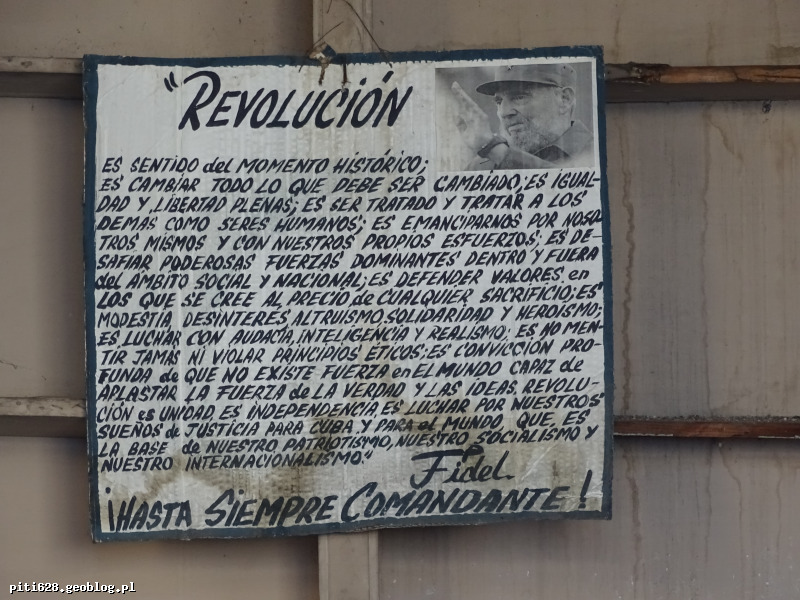 "REVOLUCIÓN
ES SENTIDO del MOMENTO HISTÓRICO;
ES CAMBIAR TODO LO QUE DEBE SER CAMBIADO; ES IGUAL-
DAD Y LIBERTAD PLENAS; ES SER TRATADO Y TRATAR A LOS
DEMAS COMO SERES HUMANOS; ES EMANCIPARNOS POR NOSO
TROS MISMOS Y CON NUESTROS PROPIOS ESFUERZOS; ES DE-
SAFIAR PODEROSAS FUERZAS DOMINANTES DENTRO y FUERA
del ÁMBITO SOCIAL Y NACIONAL; ES DEFENDER VALORES en
LOS QUE SE CREE AL PRECIO de CUALQUIER SACRIFICIO; ES
MODESTIA, DESINTERES, ALTRUISMO, SOLIDARIDAD Y HEROISMO;
ES LUCHAR CON AUDACIA, INTELIGENCIA Y REALISMO; ES NO MEN-
TIR JAMAS NI VIOLAR PRINCIPIOS ÉTICOS; ES CONVICCIÓN PRO-
FUNDA de QUE NO EXISTE FUERZA en EL MUNDO CAPAZ de
APLASTAR LA FUERZA de LA VERDAD Y LAS IDEAS REVOLU-
CIÓN es UNIDAD, ES INDEPENDENCIA, ES LUCHAR POR NUESTROS
SUEÑOS de JUSTICIA PARA CUBA Y PARA el MUNDO, QUE ES
LA BASE de NUESTRO PATRIOTISMO, NUESTRO SOCIALISMO Y
NUESTRO INTERNACIONALISMO."
Fidel
¡HASTA SIEMPRE COMANDANTE!
piti628.geoblog.pl